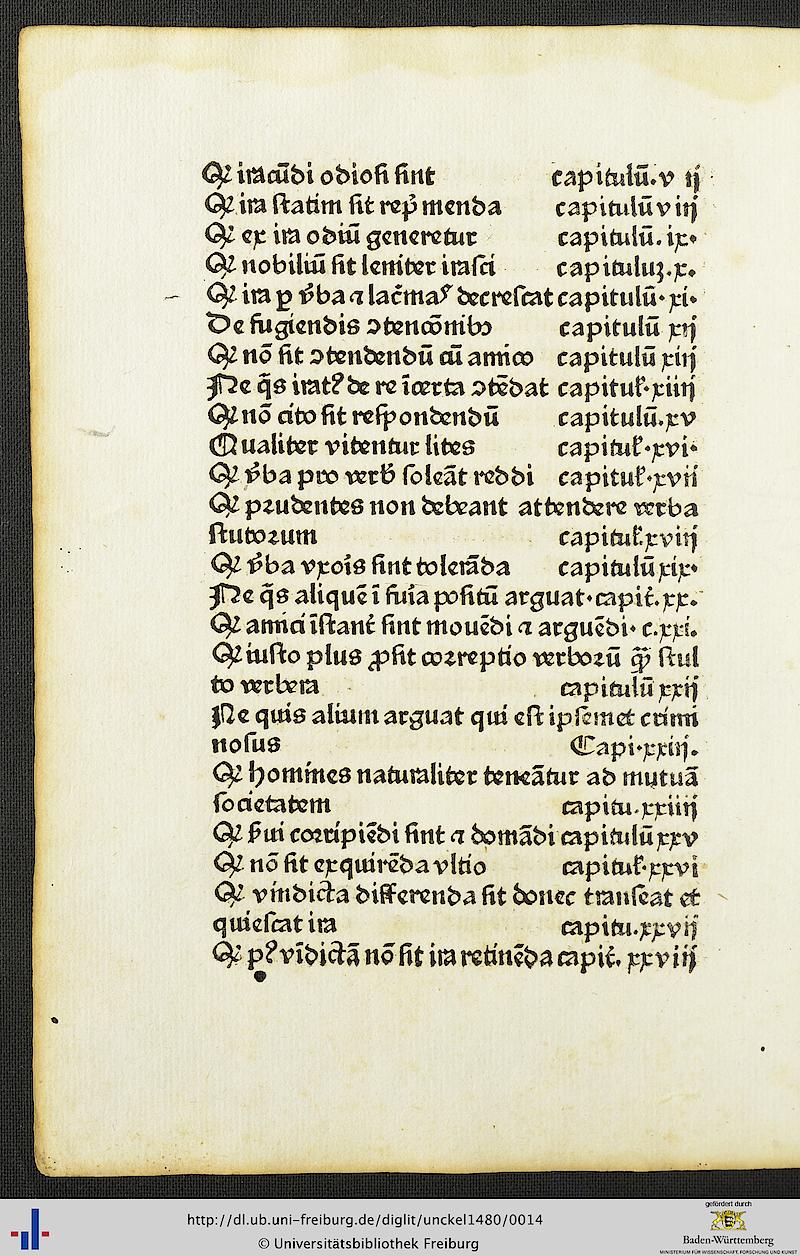 Qꝫ iracūdi odiosi sint capitulū. v ij
Qꝫ ira statim sit rep̄menda capitulū viij
Qꝫ ex ira odiū generetur capitulū. ix.
Qꝫ nobiliū sit leniter irasci capituluꝫ. x.
Qꝫ ira ꝑ v̄ba ⁊ lac̄mas decrescat capitulū. xi.
De fugiendis ↄtencōnibꝫ capitulū xij
Qꝫ nō sit ↄtendendū cū amico capitulū xiij
Ne q̄s iratꝰ de re īcerta ↄtēdat capitul̄. xiiij
Qꝫ nō cito sit respondendū capitulū. xv
Qualiter vitentur lites capitul̄. xvi.
Qꝫ v̄ba pro verb̄ soleāt reddi capitul̄. xvii
Qꝫ pꝛudentes non debeant attendere verba
stutoꝛum capitul̄. xviij
Qꝫ v̄ba vxoīs sint tolerāda capitulū xix.
Ne q̄s aliquē ī furia positū arguat. capit̄. xx.
Qꝫ amici īstant̄ sint mouēdi ⁊ arguēdi. c. xxi.
Qꝫ iusto plus ꝓsit coꝛreptio verboꝛū ꝙ̄ stul
to verbera capitulū xxij
Ne quis alium arguat qui est ipsemet crimi
nosus Capi. xxiij.
Qꝫ homines naturaliter teneātur ad mutuā
societatem capitu. xxiiij
Qꝫ s̄ui coꝛripiēdi sint ⁊ domādi capitulū xxv
Qꝫ nō sit exquirēda vltio capitul̄. xxvi
Qꝫ vindicta differenda sit donec transeat et
quiescat ira capitu. xxvij
Qꝫ pꝰ vīdictā nō sit ira retinēda capit̄. xxviij
http://dl.ub.uni-freiburg.de/diglit/unckel1480/0014
© Universitätsbibliothek Freiburg
gefördert durch
Baden-Württemberg
MINISTERIUM FÜR WISSENSCHAFT, FORSCHUNG UND KUNST